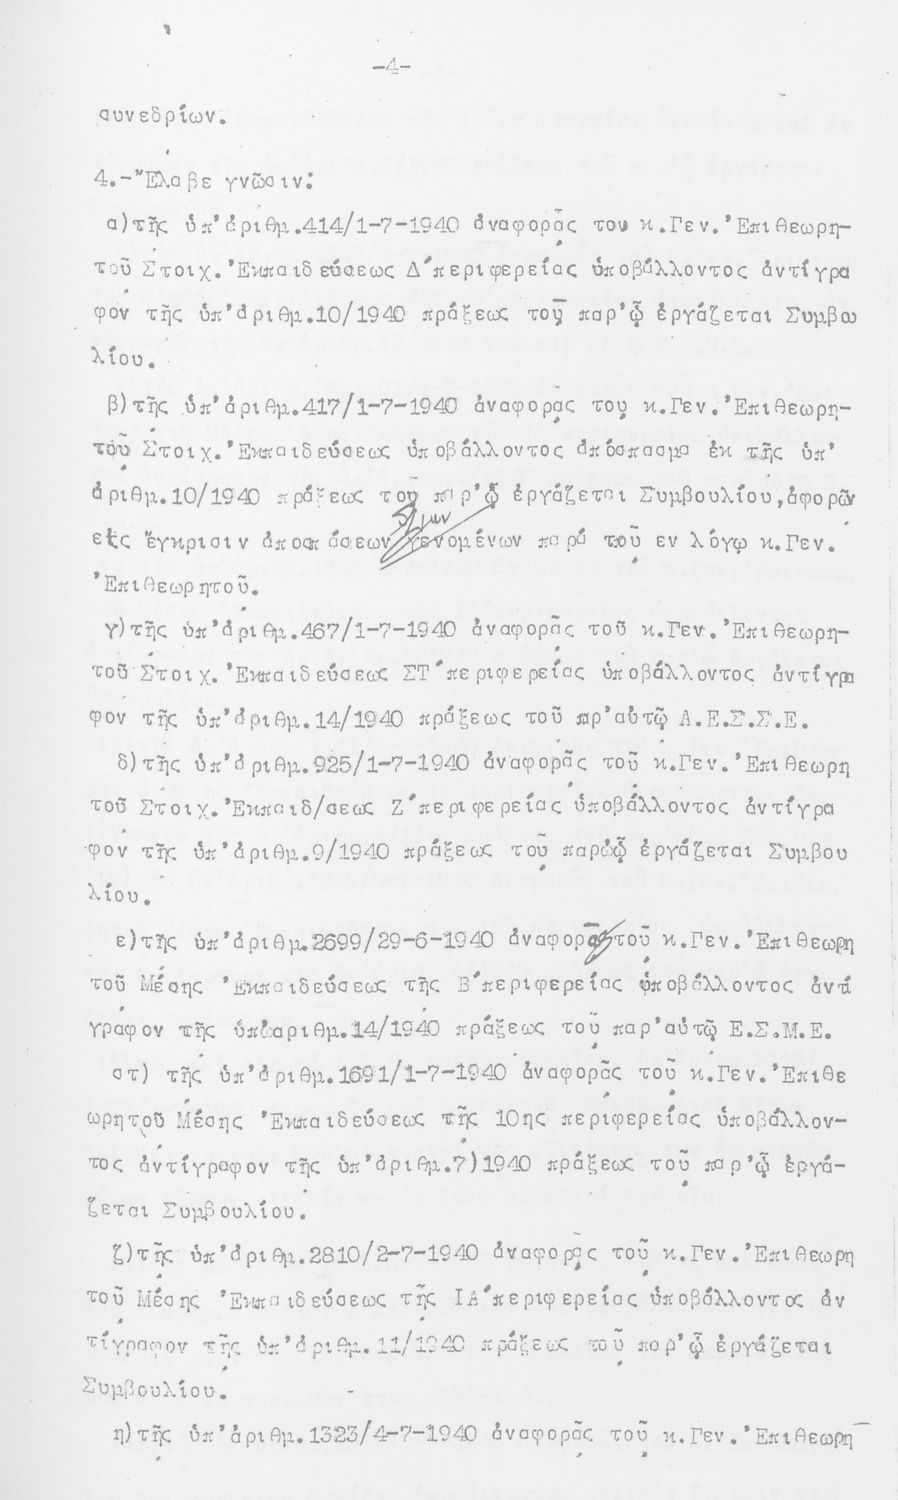 -4-
συνεδρίων.
4.-Ἔλαβε γνῶσιν:
α)τῆς ὑπ'ἀριθμ.414/1-7-1940 ἀναφορᾶς του κ.Γεν.Ἐπιθεωρη-
τοῦ Στοιχ.Ἐκπαιδεύσεως Δ΄περιφερείας ὑποβάλλοντος ἀντίγρα
φον τῆς ὑπ'ἀριθμ.10/1940 πράξεως τοῦ παρ'ᾧ ἐργάζεται Συμβου
λίου.
β)τῆς ὑπ'ἀριθμ.417/1-7-1940 ἀναφορας του κ.Γεν.Ἐπιθεωρη-
τοῦ Στοιχ.Ἐκπαιδεύσεως ὑποβάλλοντος ἀπόσπασμα ἐκ τῆς ὑπ'
ἀριθμ.10/1940 πράξεως τοῦ παρ'ᾧ ἐργάζεται Συμβουλίου,ἀφορῶν
εἰς ἔγκρισιν ἀποσπάσεων γενομένων παρά τοῦ εν λόγῳ κ.Γεν.
Ἐπιθεωρητοῦ.
γ)τῆς ὑπ'ἀριθμ.467/1-7-1940 ἀναφορᾶς τοῦ κ.Γεν.Ἐπιθεωρη-
τοῦ Στοιχ.Ἐκπαιδεύσεως ΣΤ΄περιφερείας ὑποβάλλοντος ἀντίγρα
φον τῆς ὑπ'ἀριθμ.14/1940 πράξεως τοῦ πρ'αὐτῷ Α.Ε.Σ.Σ.Ε.
δ)τῆς ὑπ'ἀριθμ.925/1-7-1940 ἀναφορᾶς τοῦ κ.Γεν.Ἐπιθεωρη
τοῦ Στοιχ.Ἐκπαιδ/σεως Ζ΄περιφερείας ὑποβάλλοντος ἀντίγρα
φον τῆς ὑπ'ἀριθμ.9/1940 πράξεως τοῦ παρᾧ ἐργάζεται Συμβου
λίου.
ε)τῆς ὑπ'ἀριθμ.2699/29-6-1940 ἀναφορᾶς τοῦ κ.Γεν.Ἐπιθεωρη
τοῦ Μέσης Ἐκπαιδεύσεως τῆς Β΄περιφερείας ὑποβάλλοντος ἀντί
γραφον τῆς ὑπ'ἀριθμ.14/1940 πράξεως τοῦ παρ'αὐτῷ Ε.Σ.Μ.Ε.
στ) τῆς ὑπ'ἀριθμ.1691/1-7-1940 ἀναφορᾶς τοῦ κ.Γεν.Ἐπιθε
ωρητοῦ Μέσης Ἐκπαιδεύσεως τῆς 10ης περιφερείας ὑποβάλλον-
τος ἀντίγραφον τῆς ὑπ'ἀριθμ.7)1940 πράξεως τοῦ παρ'ᾧ ἐργά-
ζεται Συμβουλίου.
ζ)τῆς ὑπ'ἀριθμ.2810/2-7-1940 ἀναφορᾶς τοῦ κ.Γεν.Ἐπιθεωρη
τοῦ Μέσης Ἐκπαιδεύσεως τῆς ΙΑ΄περιφερείας ὑποβάλλοντος ἀν
τίγραφον τῆς ὑπ'ἀριθμ.11/1940 πράξεως τοῦ παρ'ᾧ ἐργάζεται
Συμβουλίου.
η)τῆς ὑπ'ἀριθμ.1323/4-7-1940 ἀναφορᾶς τοῦ κ.Γεν.Ἐπιθεωρη